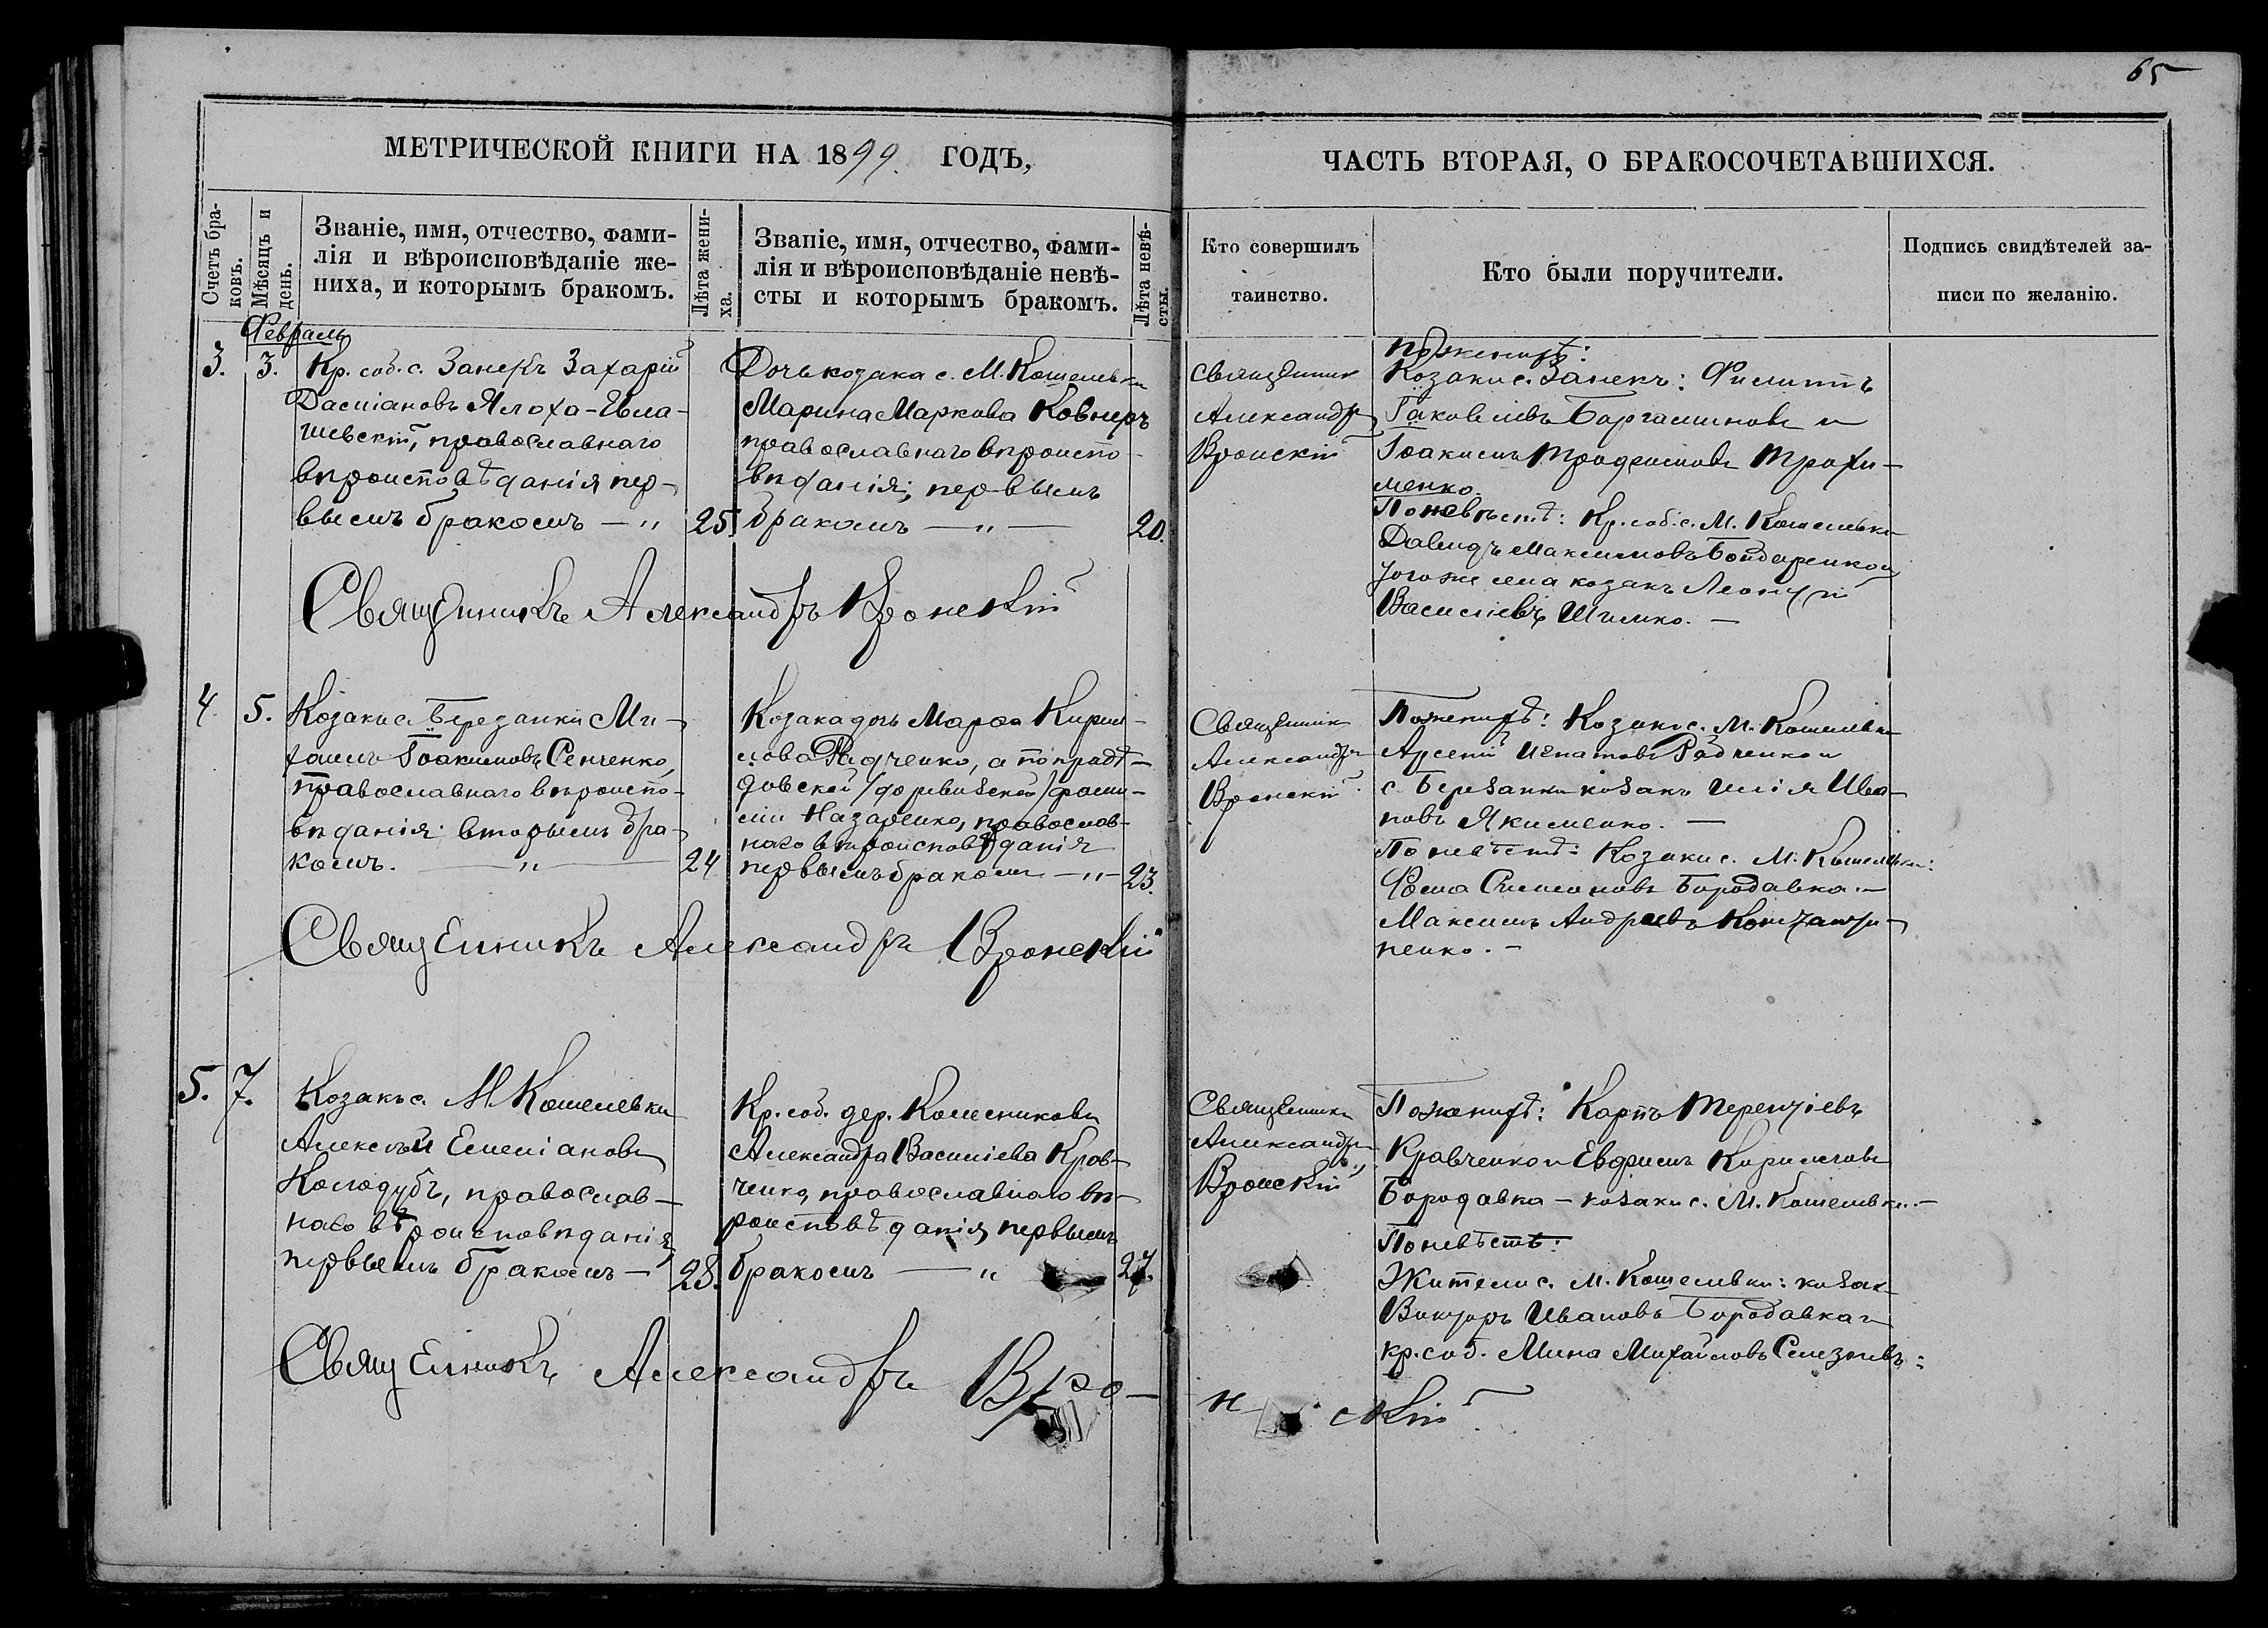 65
МЕТРИЧЕСКОЙ КНИГИ НА 1899. ГОДЪ,
ЧАСТЬ ВТОРАЯ, О БРАКОСОЧЕТАВШИХСЯ.
Счетъ бра-
ковъ.
Мѣсяцъ и
день.
Званіе, имя, отчество, фами-
лія и вѣроисповѣданіе же-
ниха, и которымъ бракомъ.
Лѣта жени-
ха.
Званіе, имя, отчество, фами-
лія и вѣроисповѣданіе невѣ-
сты и которымъ бракомъ.
Лѣта невѣ-
сты.
Кто совершилъ
таинство.
Кто были поручители.
Подпись свидѣтелей за-
писи по желанію.
Февраль
3.
3.
Кр. соб. с. Занекъ Захарій
Даміановъ
православнаго
вѣроисповѣданія пер-
вымъ бракомъ — „
25.
Дочь козака с. М. Кошелевки
Марина Маркова Ковнеръ
православнаго вѣроиспо-
вѣданія; первымъ
бракомъ — „ —
20.
Священникъ
Александръ
Вронскій
По женихѣ:
Козаки с. Занекъ: Филиппъ
Іаковлевъ и
Іоакимъ Трофимовъ Трохи-
менко.
По невѣстѣ: Кр. соб. с. М. Кошелевки
Давидъ Максимовъ Бондаренко и
того же села козакъ Леонтій
Василіевъ Шимко. —
Священникъ Александръ Вронскій
4.
5.
Козакъ с. Березанки Ми-
хаилъ Іоакимовъ Сенченко,
православнаго вѣроиспо-
вѣданія вторымъ бра-
комъ. — „ —
24
Козака дочь Марѳа Кирил-
лова Радченко, а по прадѣ-
довской /форвизской/ фами-
ліи Назаренко, православ-
наго вѣроисповѣданія
первымъ бракомъ — „ —
23.
Священникъ
Александръ
Вронскій
По женихѣ: Козаки с. М. Кошелевки
Арсеній Игнатовъ Радченко и
с. Березанки козакъ Илія Ива-
новъ Якименко. —
По невѣстѣ: Козаки с. М. Кошелевки:
Ѳома Симоновъ Бородавка. —
Максимъ Андреевъ
ненко. —
Священникъ Александръ Вронскій
5.
7.
Козакъ с. М. Кошелевки
Алексѣй Емеліановъ
Колодубъ, православ-
наго вѣроисповѣданія,
первымъ бракомъ —
28.
Кр. соб. дер. Колесниковъ
Александра Василіева Крав-
ченко, православнаго вѣ-
роисповѣданія, первымъ
бракомъ — „
27.
Священникъ
Александръ
Вронскій
По женихѣ: Карпъ Терентіевъ
Кравченко и Евфимъ Кирилловъ
Бородавка — козаки с. М. Кошелевки. —
По невѣстѣ:
Жители с. М. Кошелевки: козакъ
Викторъ Ивановъ Бородавка и
кр. соб. Мина Михайловъ Селезневъ:
Священникъ Александръ Вро-
н скій